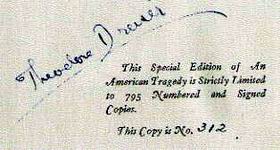 Theodore Dreiser
This Special Edition of An
American Tragedy is Strictly Limited
to 795 Numbered and Signed
Copies.
This Copy is No. 312.